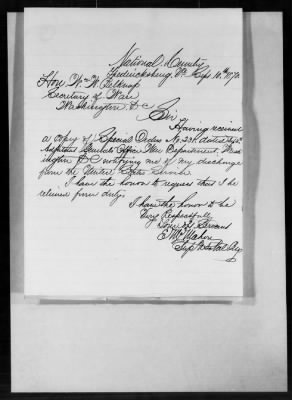 National Cemetery
Fredericksburg, Va. Sept 10th 1870
Hon. Wm W. Belknap
Secretary of War
Washington D.C.
Sir
Having received
a copy of Special Orders No. 231. dated
Adjutant Generals Office War Department, Wash
ington D.C. notifying me of my discharge
from the United States Service.
I have the honor to request that I be
relieved from duty.
I have the honor to be
Very Respectfully
Your Obt Servant
Supt Nat Cy